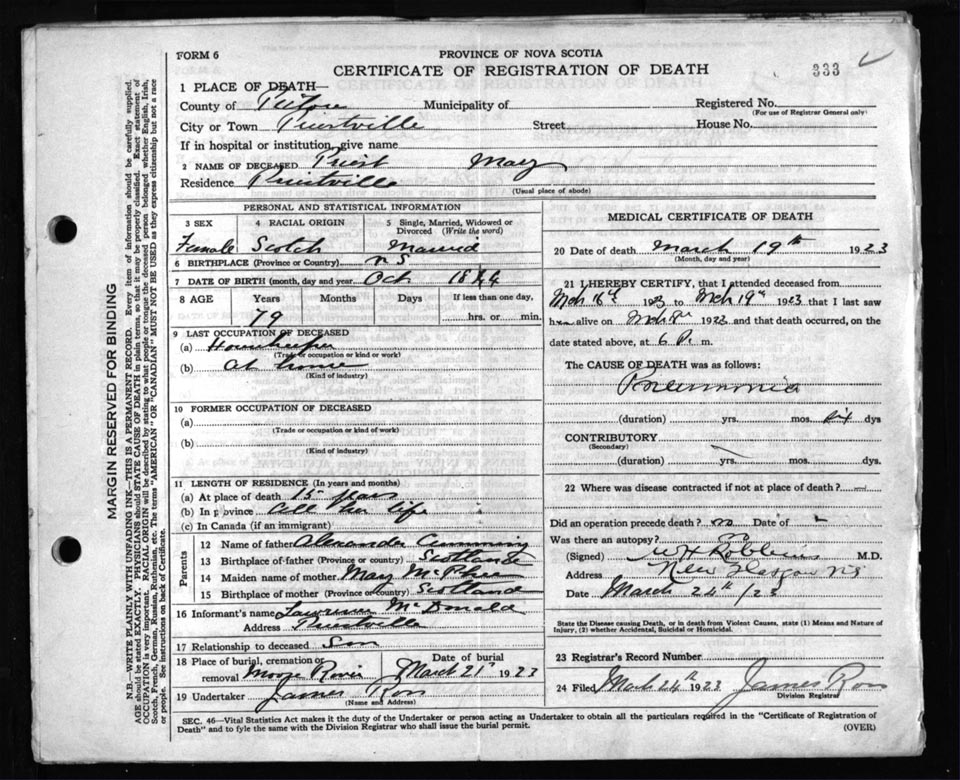 FORM 6
PROVINCE OF NOVA SCOTIA
CERTIFICATE OF REGISTRATION OF DEATH
333
1 PLACE OF DEATH—
County of Pictou Municipality of Registered No.
(For use of Registrar General only)
City or Town Priestville Street House No.
If in hospital or institution, give name
2 NAME OF DECEASED Priest Mary
Residence Priestville
(Usual place of abode)
PERSONAL AND STATISTICAL INFORMATION
3 SEX 4 RACIAL ORIGIN 5 Single, Married, Widowed or Divorced (Write the word)
Female Scotch Married
6 BIRTHPLACE (Province or Country) N S
7 DATE OF BIRTH (month, day and year) Oct 1844
8 AGE Years Months Days If less than one day,
79 hrs. or min.
9 LAST OCCUPATION OF DECEASED
(a) Housekeeper
(Trade or occupation or kind or work)
(b) At home
(Kind of industry)
10 FORMER OCCUPATION OF DECEASED
(a)
(Trade or occupation or kind of work)
(b)
(Kind of industry)
11 LENGTH OF RESIDENCE (In years and months)
(a) At place of death 15 years
(b) In province All her life
(c) In Canada (if an immigrant)
Parents
12 Name of father Alexander Cumming
13 Birthplace of father (Province or country) Scotland
14 Maiden name of mother Mary McPhee
15 Birthplace of mother (Province or country) Scotland
16 Informant's name Lawrence McDonald
Address Priestville
17 Relationship to deceased Son
18 Place of burial, cremation or removal Moose River Date of burial March 21st 1923
19 Undertaker James Ross
(Name and Address)
MEDICAL CERTIFICATE OF DEATH
20 Date of death March 19th 1923
(Month, day and year)
21 I HEREBY CERTIFY, that I attended deceased from
Mch 16th 1923 to Mch 19th 1923 that I last saw
her alive on 1923 and that death occurred, on
the date stated above, at 6 P. m.
The CAUSE OF DEATH was as follows:
Pneumonia
(duration) yrs. mos. six dys
CONTRIBUTORY
(Secondary)
(duration) yrs. mos. dys.
22 Where was disease contracted if not at place of death?
Did an operation precede death? no Date of
Was there an autopsy? no
(Signed) W H Robbins M.D.
Address New Glasgow NS
Date March 24th/23
State the Disease causing Death, or in death from Violent Causes, state (1) Means and Nature of
Injury, (2) whether Accidental, Suicidal or Homicidal.
23 Registrar's Record Number
24 Filed March 24th 1923 James Ross
Division Registrar
SEC. 46—Vital Statistics Act makes it the duty of the Undertaker or person acting as Undertaker to obtain all the particulars required in the "Certificate of Registration of
Death" and to fyle the same with the Division Registrar who shall issue the burial permit. (OVER)
MARGIN RESERVED FOR BINDING
N.B.—WRITE PLAINLY WITH UNFADING INK—THIS IS A PERMANENT RECORD. Every item of information should be carefully supplied.
AGE should be stated EXACTLY. PHYSICIANS should STATE CAUSE OF DEATH in plain terms, so that it may be properly classified. Exact statement of
OCCUPATION is very important. RACIAL ORIGIN will be described by stating to what people or tongue the deceased person belonged whether English, Irish,
Scotch, French, German, Russian, Ruthenian, etc. The terms "AMERICAN" or "CANADIAN" MUST NOT BE USED as they express citizenship but not a race
or people. See instructions on back of Certificate.